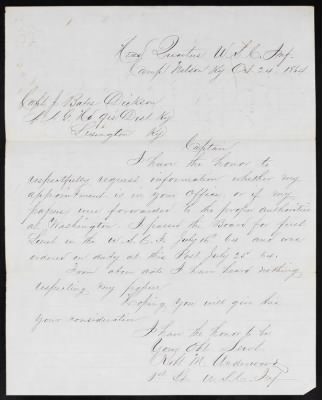 Head Quarters U.S.C. Inf.
Camp Nelson Ky Oct. 24, 1864
Capt J. Bates Dickson
A A G Hd qrs Dist Ky
Lexington Ky
Captain
I have the honor to
respectfully request information whether my
appointment is in your office, or if my
papers were forwarded to the proper authorities
at Washington. I passed the Board for first
Lieut in the U.S.C.I. July 16" 64 and was
ordered on duty at this Post July 25" 64.
From above date I have heard nothing
respecting my papers
Hoping you will give this
your consideration
I have the honor to be
Your Obt Servt
Robt M. Underwood
1st Lt. U.S.C. Inf